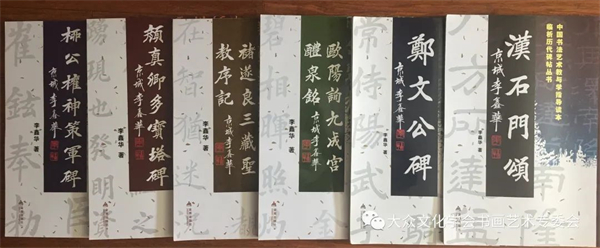 柳公權神策軍碑
京城李鑫華
李鑫华 著
崔鉉奉勅
顏真卿多寶塔碑
京城李鑫華
李鑫华 著
湧現也發明
褚遂良三藏聖
教序記
京城李鑫華
李鑫华 著
在智猶迷
歐陽詢九成宮
醴泉銘
京城李鑫華
李鑫华 著
碧相輝照
鄭文公碑
京城李鑫華
李鑫华 著
常侍陽武
漢石門頌
京城李鑫華
李鑫华 著
中国书法艺术教与学指导读本
临析历代碑帖丛书
大众文化学会书画艺术专委会